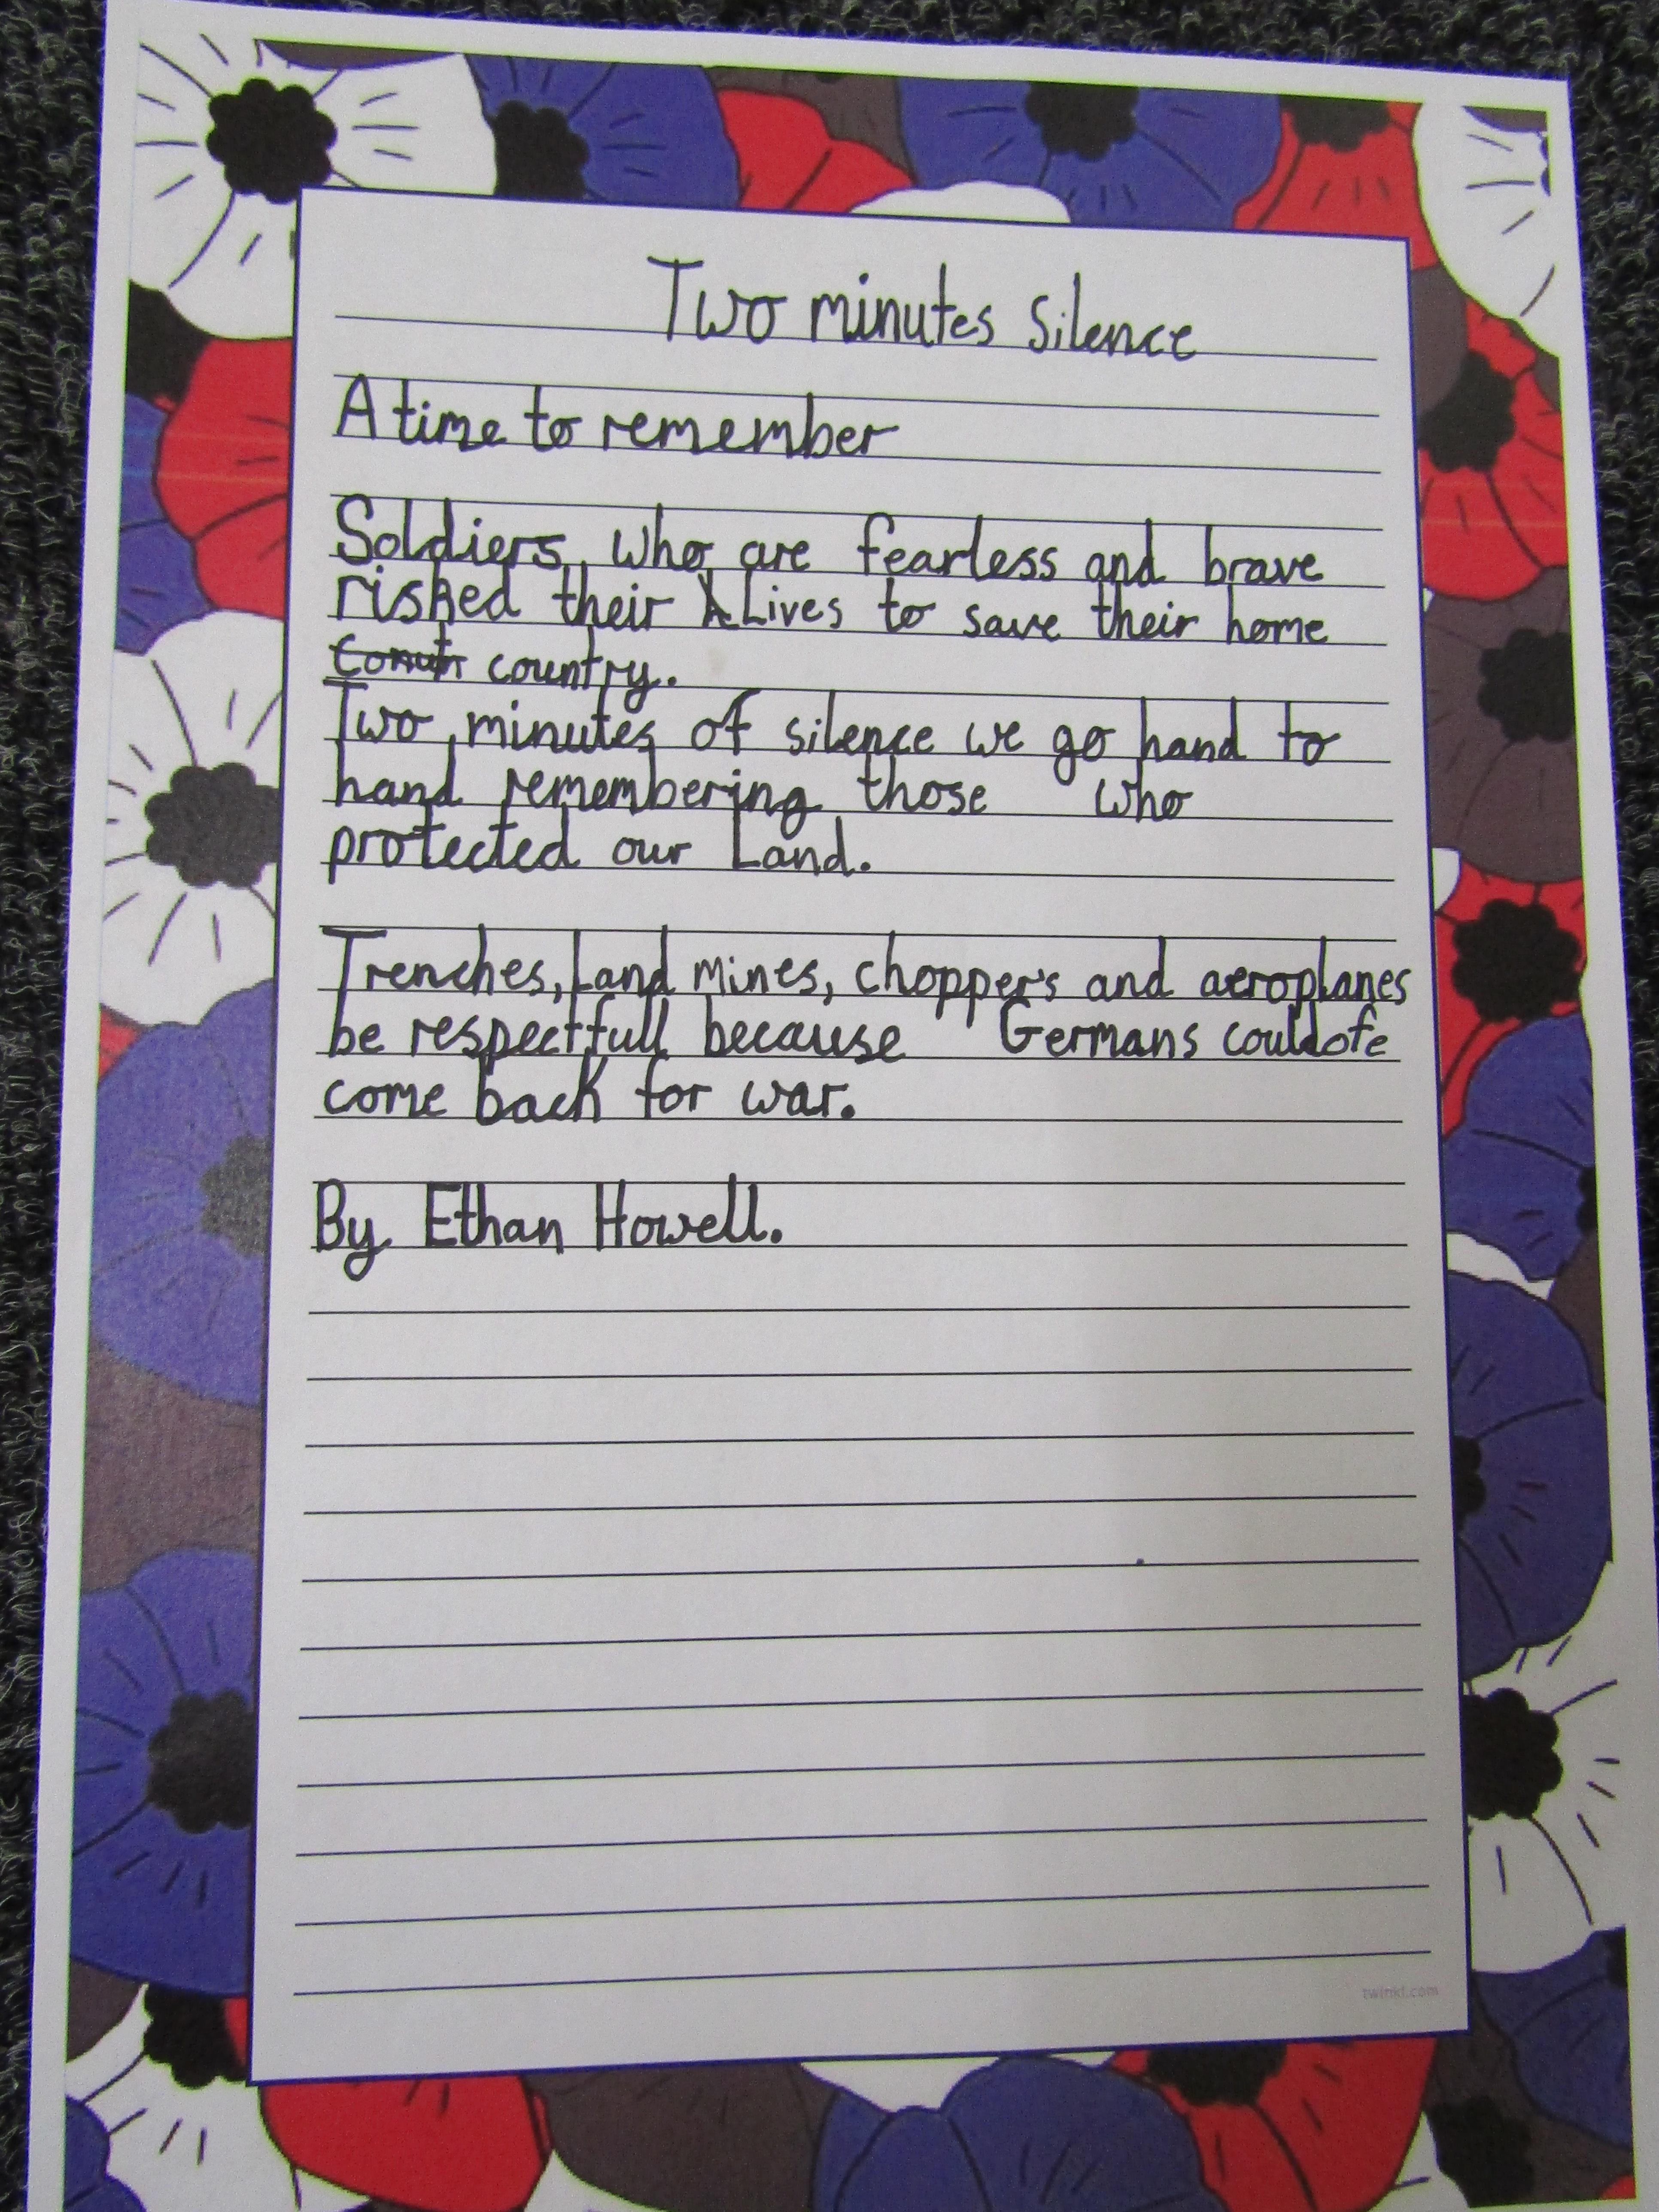 Two minutes silence
A time to remember
Soldiers, who are fearless and brave
risked their Lives to save their home
country.
Two minutes of silence we go hand to
hand remembering those who
protected our Land.
Trenches, Land mines, choppers and aeroplanes
be respectfull because Germans could
come back for war.
By Ethan Howell.
twinkl.com